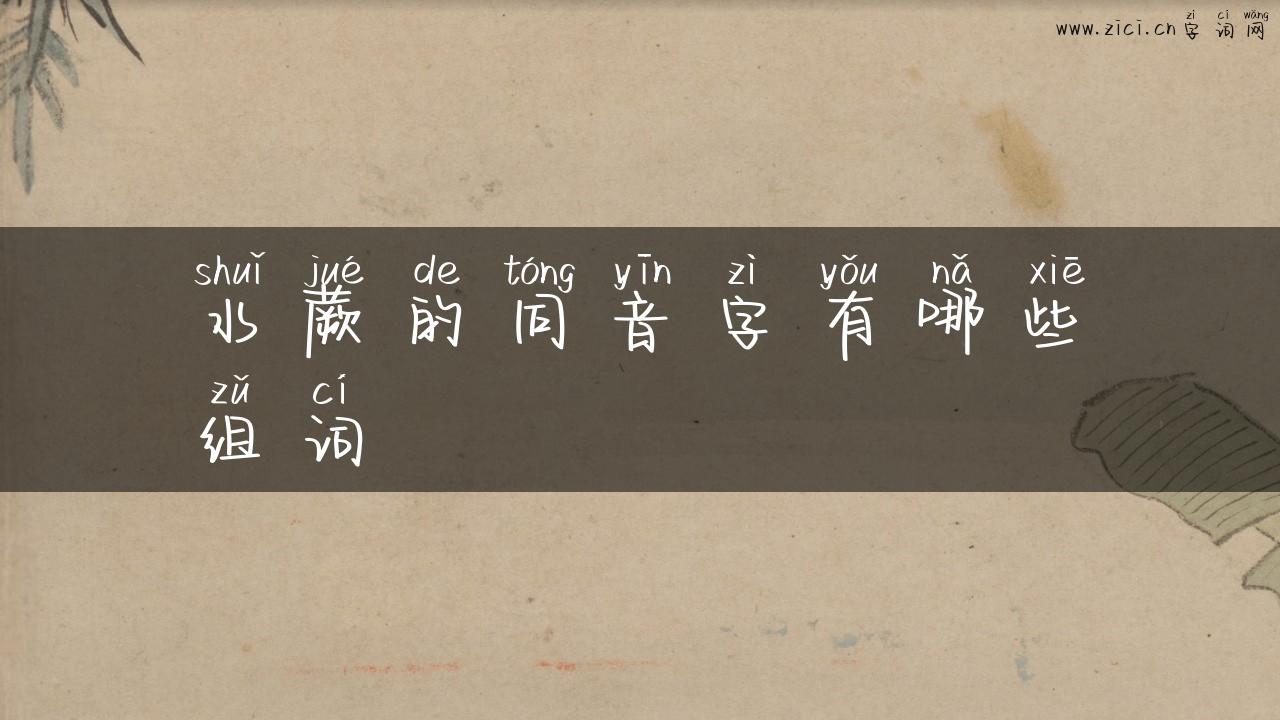 zì cí wǎng
www.zici.cn 字词网
shuǐ jué de tóng yīn zì yǒu nǎ xiē
水蕨的同音字有哪些
zǔ cí
组词